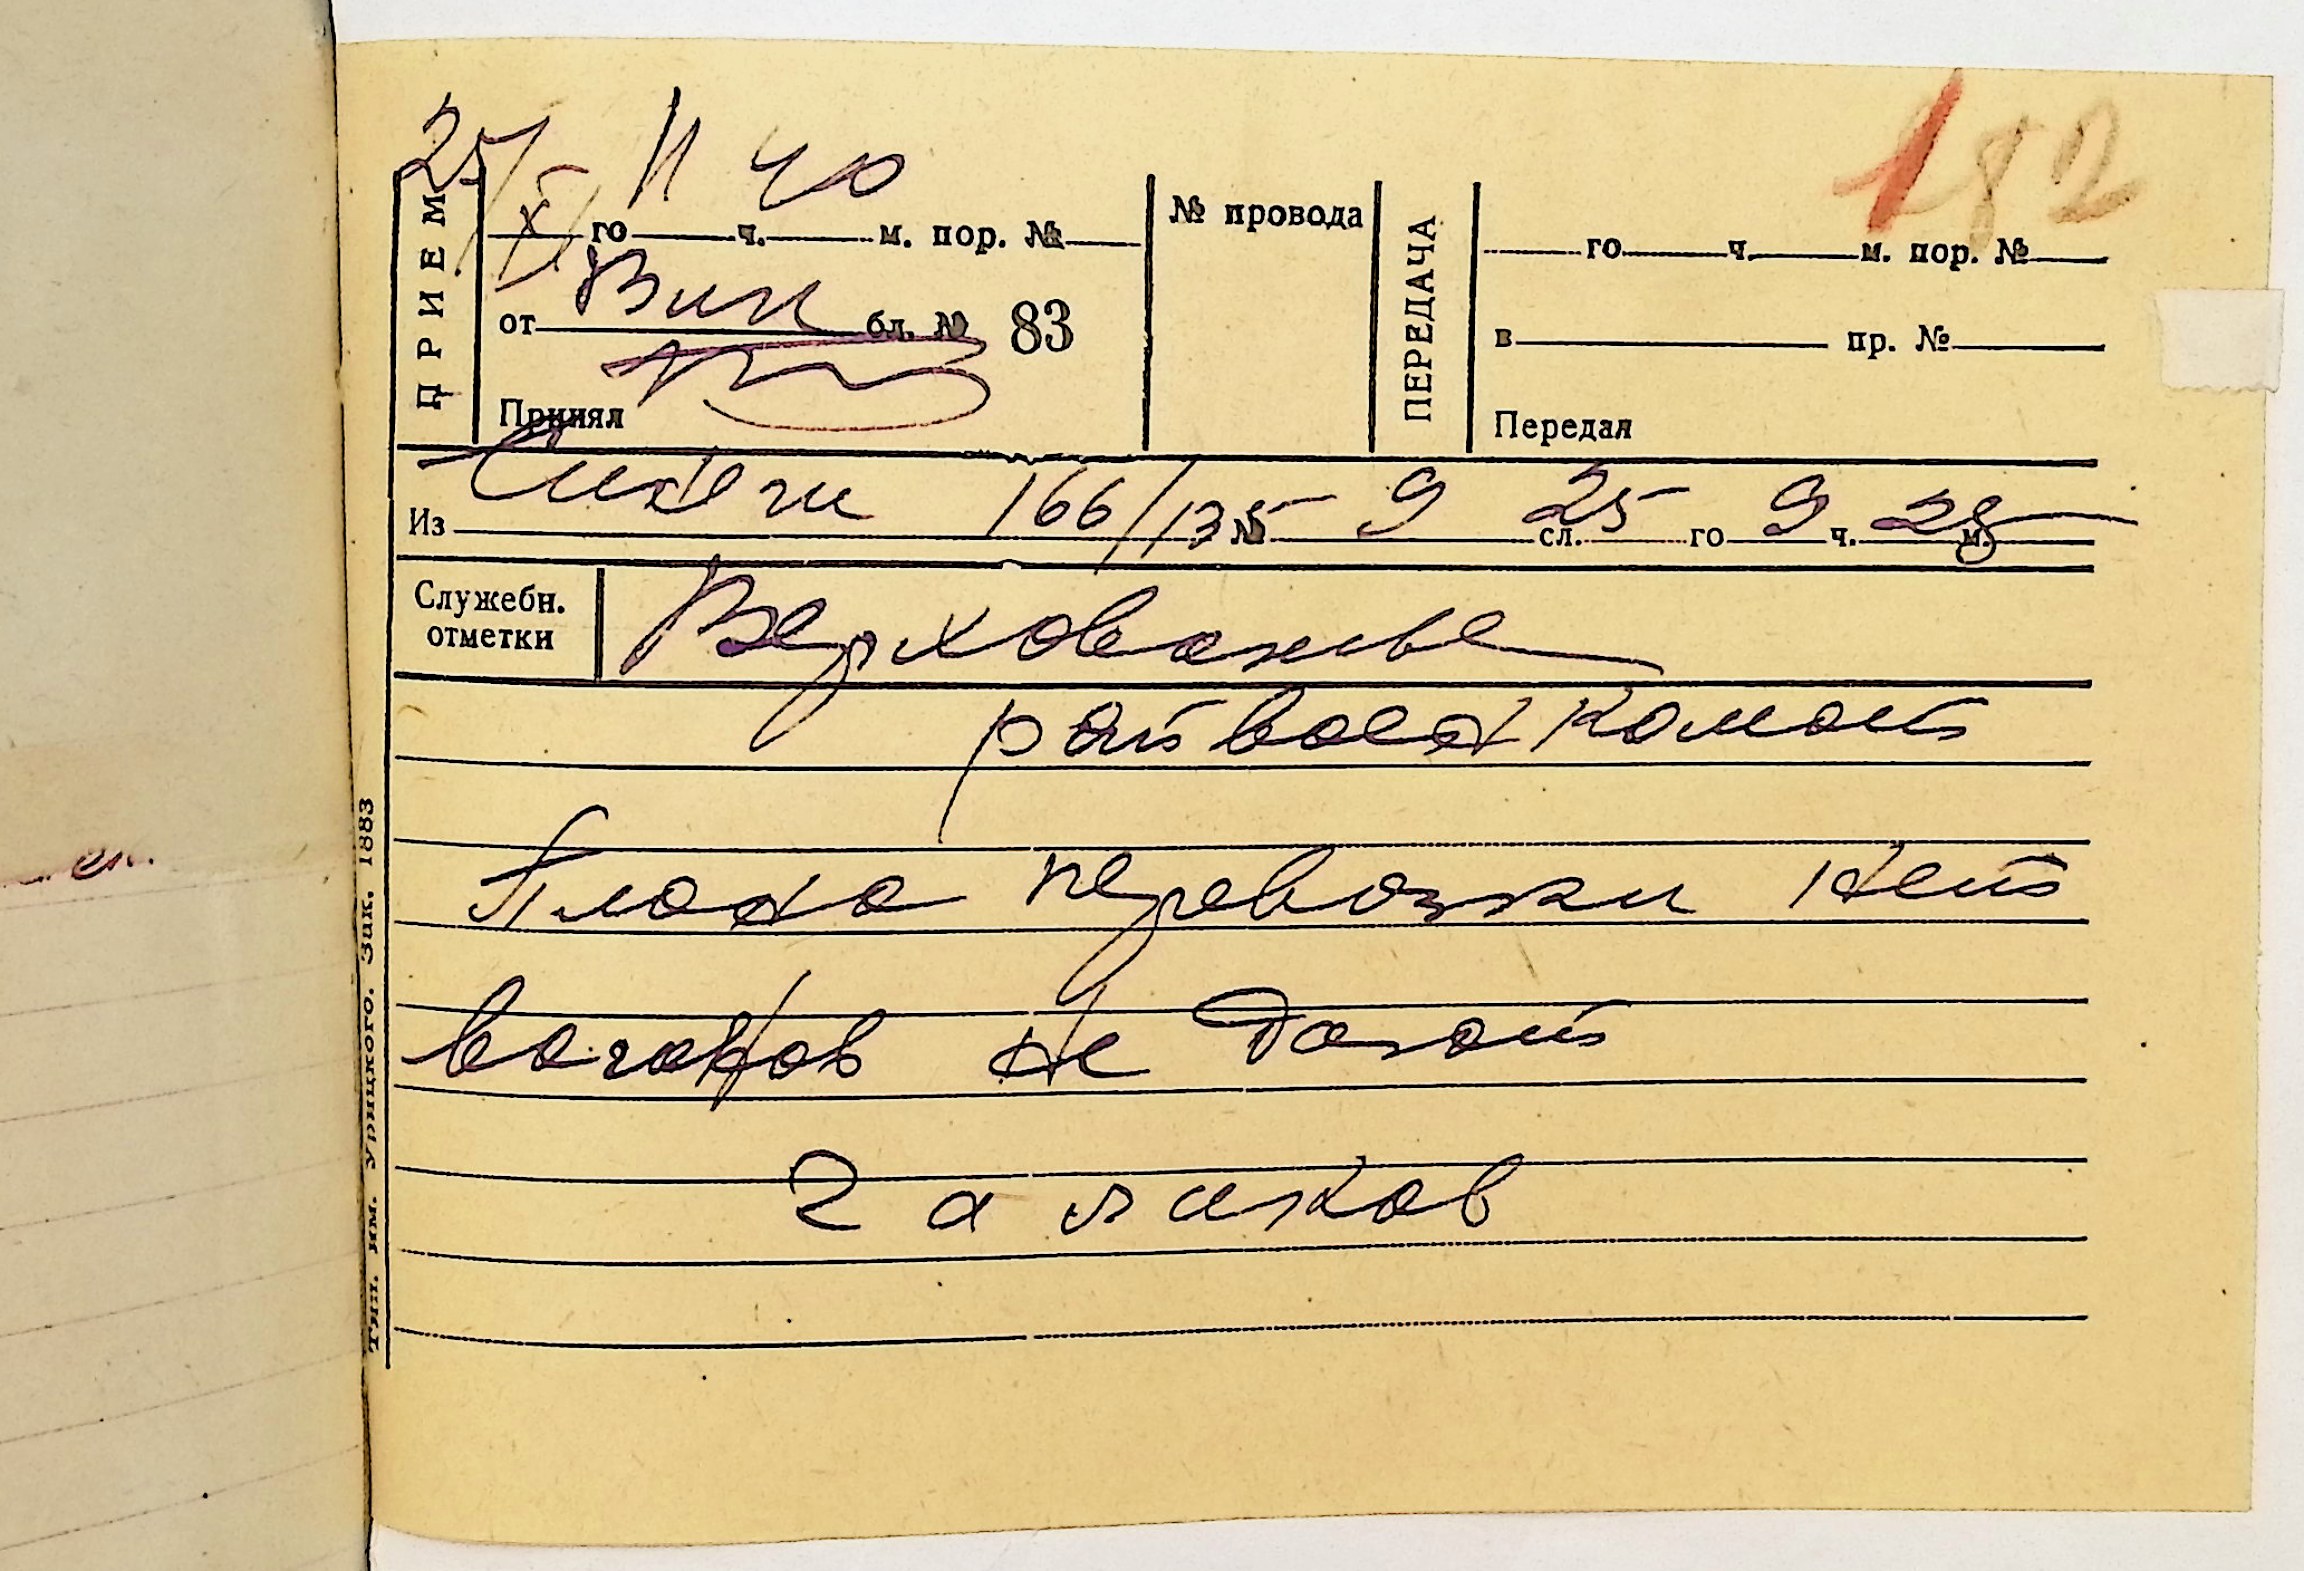 182
25/XI 11 40
ПРИЕМ го ч. м. пор. № № провода ПЕРЕДАЧА го ч. м. пор. №
от бл. № 83 в пр. №
Принял Передал
Из 166/135 № 9 сл. 25 го 9 ч. 25 м.
Служебн. отметки Верховажье
райвоенкомат
ен.
Плана перевозки нет
вагонов не дают
Галиков
Тип. им. Урицкого. Зак. 1883